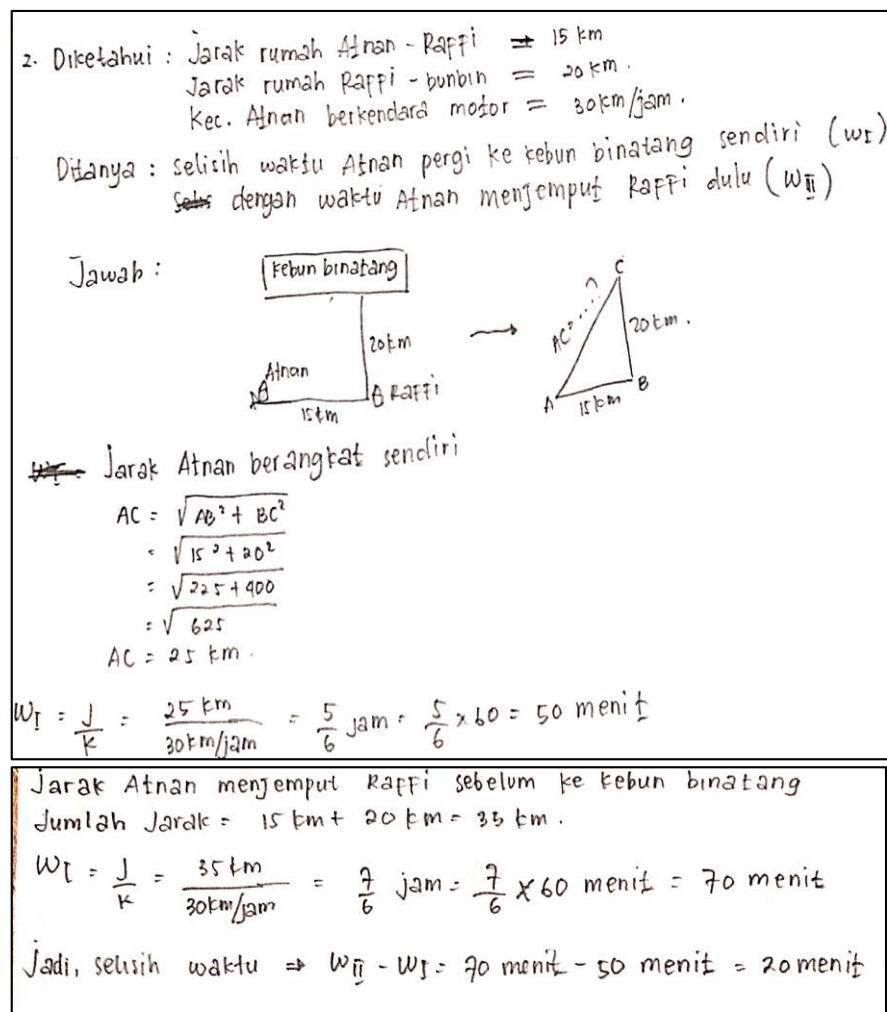 2. Diketahui : Jarak rumah Atnan - Raffi = 15 km
Jarak rumah Raffi - bunbin = 20 km.
Kec. Atnan berkendara motor = 30 km/jam.
Ditanya : selisih waktu Atnan pergi ke kebun binatang sendiri (WI)
dengan waktu Atnan menjemput Raffi dulu (WII)
Jawab :
kebun binatang
20 km
Atnan
Raffi
15 km
C
AC? 20 km.
A 15 km B
Jarak Atnan berangkat sendiri
AC = √AB² + BC²
= √15² + 20²
= √225 + 400
= √625
AC = 25 km.
WI = J/K = 25 km/30 km/jam = 5/6 jam = 5/6 x 60 = 50 menit
Jarak Atnan menjemput Raffi sebelum ke kebun binatang
Jumlah Jarak = 15 km + 20 km = 35 km.
WI = J/K = 35 km/30 km/jam = 7/6 jam = 7/6 x 60 menit = 70 menit
Jadi, selisih waktu ⇒ WII - WI = 70 menit - 50 menit = 20 menit